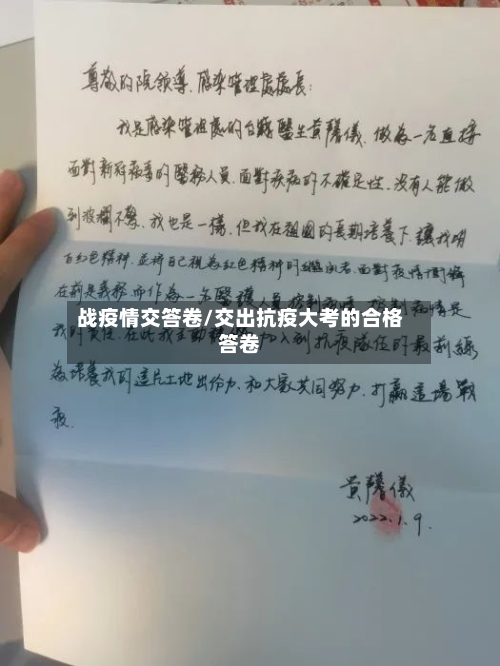 尊敬的院领導、感染管理處處長：
我是感染管理處的台籍醫生黄馨儀，做為一名直接
面對新冠病毒的醫務人員，面對疾病的不確定性，没有人能做
到波瀾不驚，我也是一樣，但我在祖國的長期培養下，讓我明
白紅色精神，並將自己視為紅色精神的
在前是義務，而作為一名醫護人員
战疫情交答卷/交出抗疫大考的合格
答卷
我的責任，在此我主動 加入到抗疫隊伍的最前線
為培養我的這片土地出份力，和大家共同努力，打赢這場戰
疫。
黄馨儀
2022.1.9.